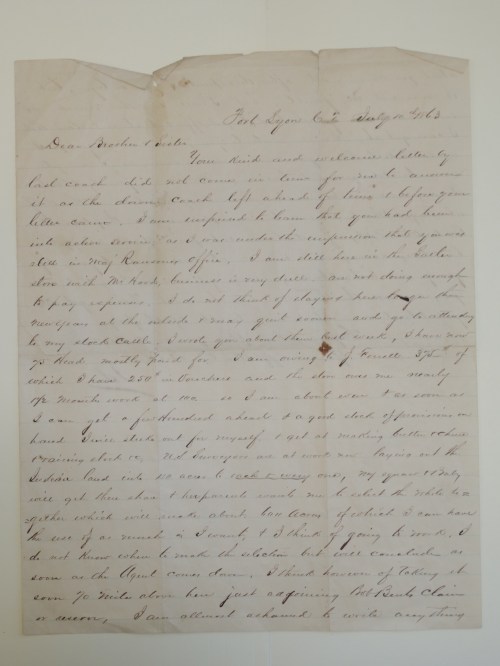 Fort Lyon C.T. July 10th 1863
Dear Brother & Sister
Your kind and welcome letter by
last coach did not come in time for me to answer
it as the down coach left ahead of time & before your
letter came. I am surprised to learn that you had been
into action again as I was under the impression that you was
still in Maj Ransoms Office. I am still here in the Sutler
store with Mr Kock, business is very dull. are not doing enough
to pay expenses. I do not think of staying here longer than
newyears at the outside & may quit sooner and go to attending
to my stock cattle. I wrote you about them last week, I have now
75 Head mostly paid for. I am owing J. Ferrell of
which I have in Vouchers and the store owes me nearly
months work at so I am about even & as soon as
I can get a few Hundred ahead & a good stock of provisions on
hand I will strike out for myself & get at making butter & cheese
& raising stock &c. U.S. Surveyors are at work now laying out the
Indian land into acres to each & every one, my squaw & baby
will get their share & wants me to select the white to
gether which will make about acres of which I can have
the use of as much as I want, & I think of going to work. I
do not know where to make the selection but will conclude as
soon as the Agent comes down. I think however of taking it
some miles above here just adjoining Bents Claim
or reserve, I am allmost ashamed to write anything